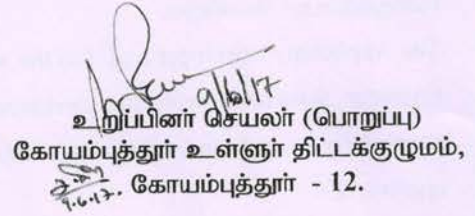 9/6/17
உறுப்பினர் செயலர் (பொறுப்பு)
கோயம்புத்தூர் உள்ளுர் திட்டக்குழுமம்,
9.6.17. கோயம்புத்தூர் - 12.